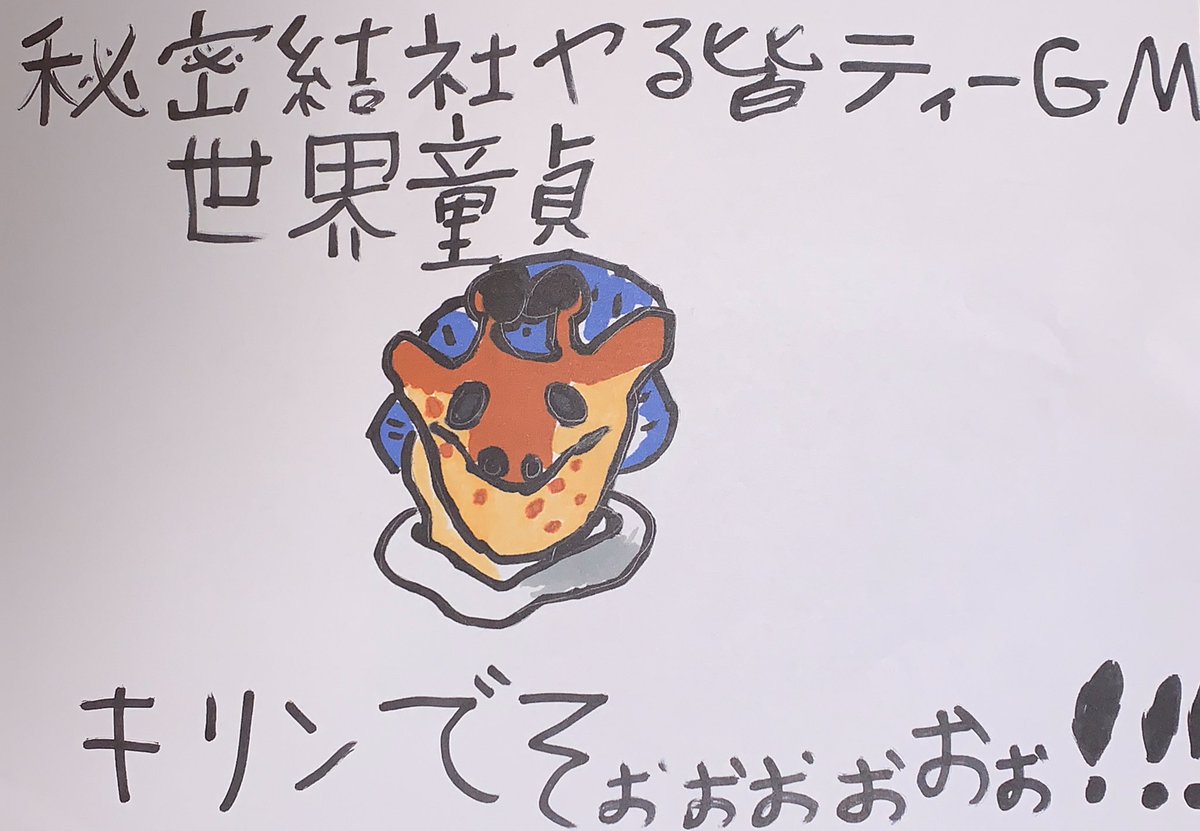 秘密結社ヤる皆ティーGM
世界童貞
キリンでそぉぉぉぉおぉ!!!